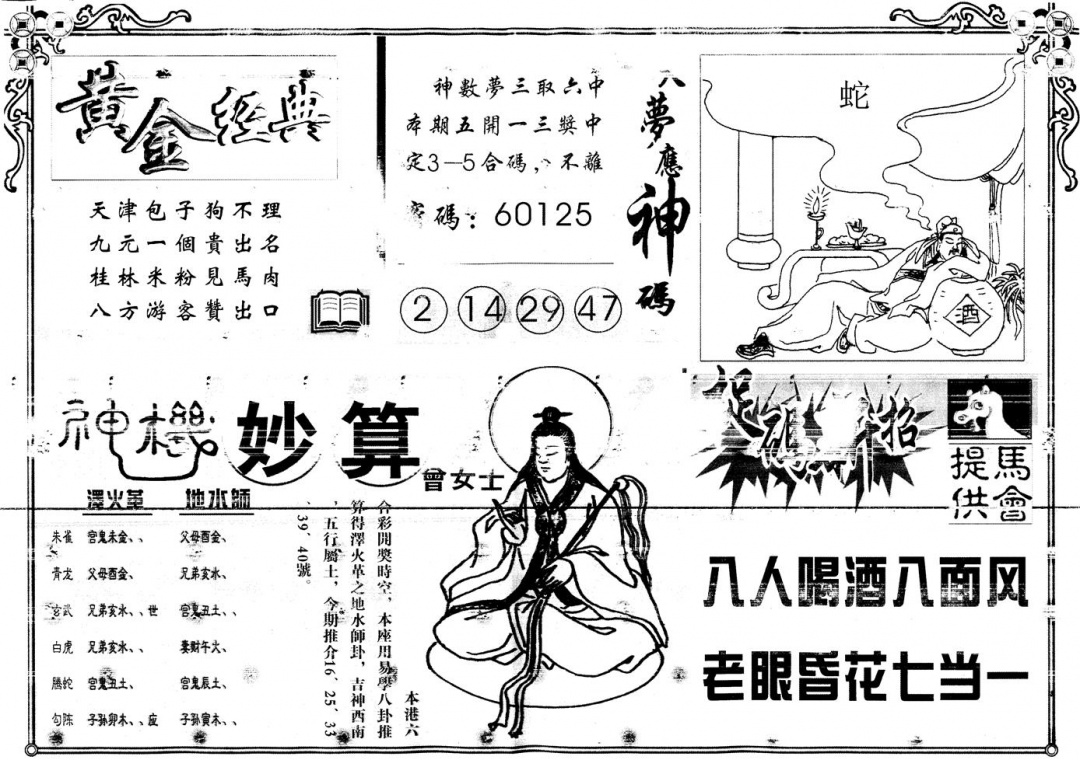 黄金經典
天津包子狗不理
九元一個貴出名
桂林米粉見馬肉
八方游客贊出口
神數夢三取六中
本期五開一三獎中
定3—5合碼，不離
碼：60125
2 14 29 47
夢應神碼
蛇
酒
神機妙算
曾女士
澤火革 地水師
朱雀 官鬼未金、、 父母酉金、
青龙 父母酉金、 兄弟亥水、
玄武 兄弟亥水、、世 官鬼丑土、、
白虎 兄弟亥水、、 妻财午火、
腾蛇 官鬼丑土、 官鬼辰土、
勾陈 子孙卯木、、应 子孙寅木、、
本港六
合彩開獎時空，本座用易學八卦推
算得澤火革之地水師卦，吉神西南
，五行屬土，今期推介16、25、33
、39、40號。
碼 招
馬會
提供
八人喝酒八面风
老眼昏花七当一